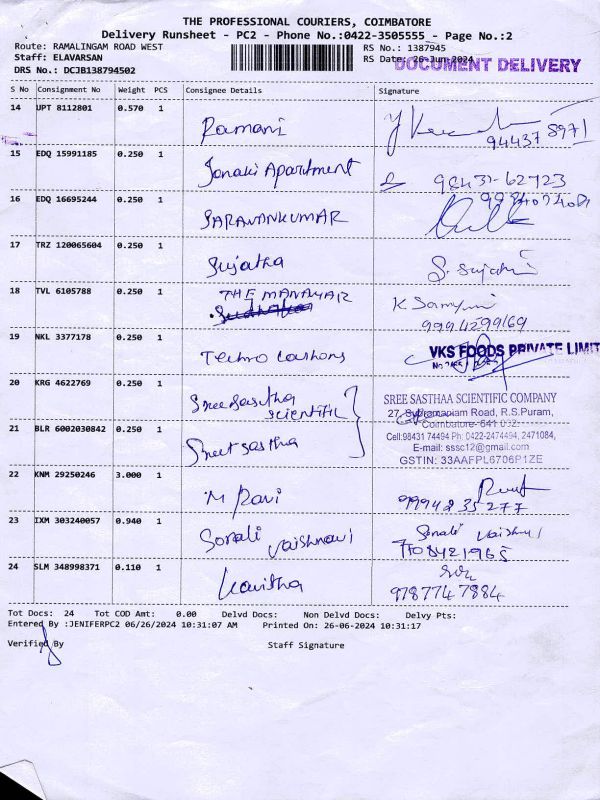 THE PROFESSIONAL COURIERS, COIMBATORE
Delivery Runsheet - PC2 - Phone No.:0422-3505555 - Page No.:2
Route: RAMALINGAM ROAD WEST
RS No.: 1387945
Staff: ELAVARSAN
RS Date: 26-Jun-2024
DOCUMENT DELIVERY
DRS No.: DCJB138794502
S No Consignment No Weight PCS Consignee Details Signature
14 UPT 8112801 0.570 1 Ramani
94437 8971
15 EDQ 15991185 0.250 1 Janaki Apartment 98437-62723
16 EDQ 16695244 0.250 1 SARAVANKUMAR
17 TRZ 120065604 0.250 1 Sujatha S. Sujatha
18 TVL 6105788 0.250 1 THE MANAGAR
9994299169
19 NKL 3377178 0.250 1 Techno VKS FOODS PRIVATE LIMIT
20 KRG 4622769 0.250 1 Sree Sastha Scientific
SREE SASTHAA SCIENTIFIC COMPANY
27, Subramaniam Road, R.S.Puram,
Coimbatore- 641 002.
21 BLR 6002030842 0.250 1 Sree Sastha
Cell:98431 74494 Ph: 0422-2474494, 2471084,
E-mail: sssc12@gmail.com
GSTIN: 33AAFPL6706P1ZE
22 KNM 29250246 3.000 1 M Ravi
9994235277
23 IXM 303240057 0.940 1 Sonali Vaishnavi Sonali
7708421965
24 SLM 348998371 0.110 1 Kavitha
9787747884
Tot Docs: 24 Tot COD Amt: 0.00 Delvd Docs: Non Delvd Docs: Delvy Pts:
Entered By :JENIFERPC2 06/26/2024 10:31:07 AM Printed On: 26-06-2024 10:31:17
Verified By Staff Signature